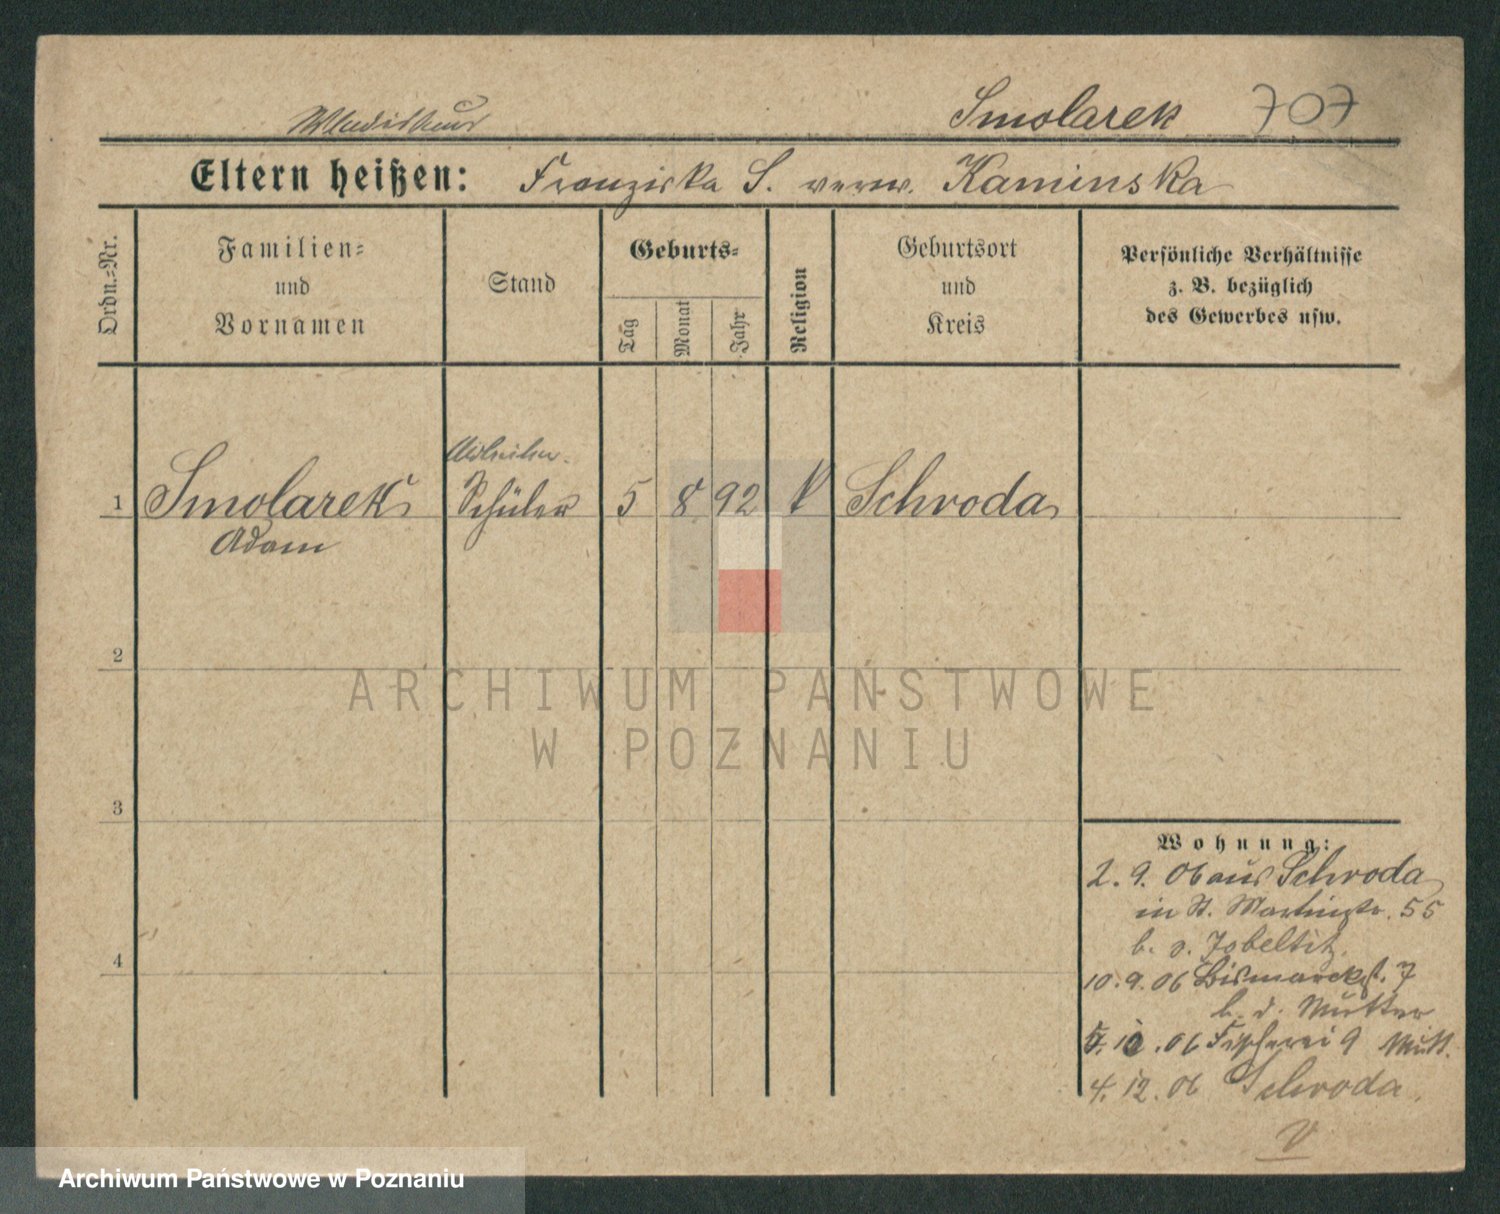 Smolarek 707
Eltern heißen: Franziska S. verw. Kaminska
Ordn.=Nr.
Familien=
und
Vornamen
Stand
Geburts=
Tag
Monat
Jahr
Religion
Geburtsort
und
Kreis
Persönliche Verhältnisse
z. B. bezüglich
des Gewerbes usw.
1 Smolarek Schüler 5 8 92 k Schroda
Adam
2
3
4
ARCHIWUM PAŃSTWOWE
W POZNANIU
Wohnung:
2. 9. 06 aus Schroda
in St. Martinstr. 55
b.
10. 9. 06 Bismarckst. 7
b. d. Mutter
.06 Fischerei 9 Mutt.
4. 12. 06 Schroda
V
Archiwum Państwowe w Poznaniu